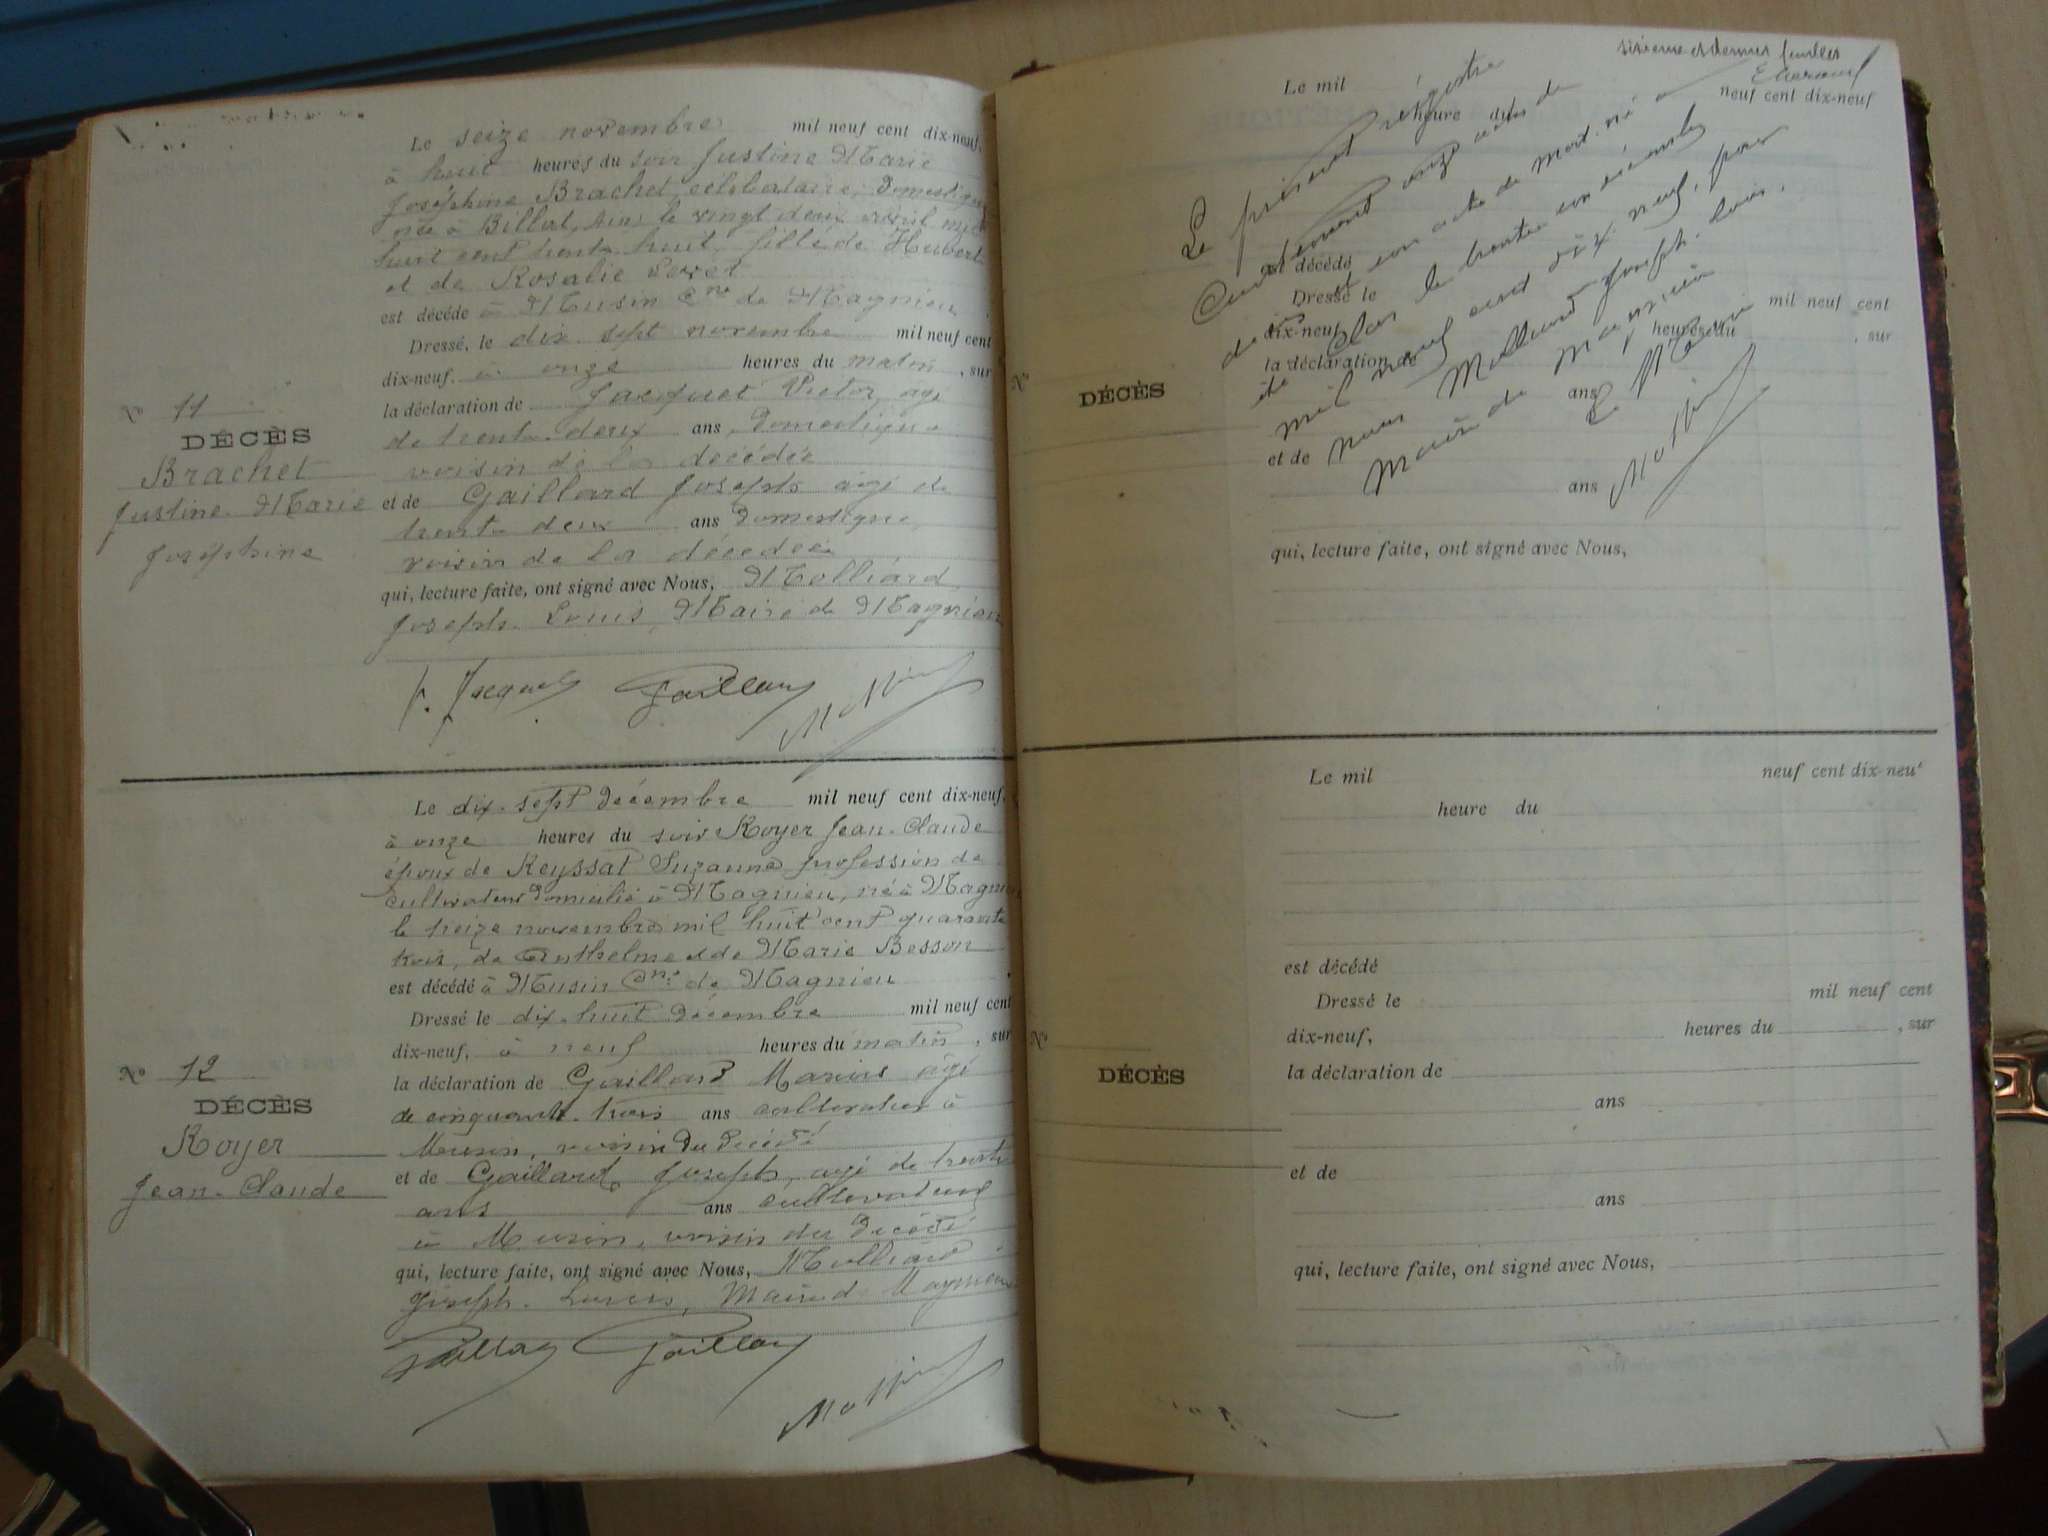 Le seize novembre mil neuf cent dix-neuf,
à huit heures du soir Justine Marie
Joséphine Brachet, célibataire, Domestique
née à Billat, Ain, le vingt deux avril mil
huit cent trente huit, fille de Hubert
et de Rosalie
est décédé à Musin Cne de Magnieu
Dressé, le dix sept novembre mil neuf cent
dix-neuf. à onze heures du matin, sur
la déclaration de Jacquet Victor, agé
de trente-deux ans, Domestique
voisin de la décédée
et de Gaillard Joseph agé de
trente deux ans Domestique
voisin de la décédée
qui, lecture faite, ont signé avec Nous, Molliard
Joseph-Louis, Maire de Magnieu
No 11
DÉCÈS
Brachet
Justine-Marie
Joséphine
Jacquet Gaillard
Le dix-sept Décembre mil neuf cent dix-neuf,
à onze heures du soir Royer Jean-Claude
époux de Reyssat Suzanne profession de
cultivateur Domicilié à Magnieu, né à Magnieu
le treize novembre mil huit cent quarante
trois, de Anthelme et de Marie Besson
est décédé à Musin Cne de Magnieu
Dressé le dix-huit Décembre mil neuf cent
dix-neuf, à neuf heures du matin, sur
la déclaration de Gaillard Marius agé
de cinquante-trois ans cultivateur à
Musin, voisin du Décédé
et de Gaillard, Joseph, agé de trente
ans ans cultivateur
à Musin, voisin du Décédé
qui, lecture faite, ont signé avec Nous, Molliard
Joseph-Louis, Maire de Magnieu
No 12
DÉCÈS
Royer
Jean-Claude
Gaillard Gaillard
sixième et dernier feuillet
Le mil neuf cent dix-neuf
heure du
est décédé
Dressé le mil neuf cent
dix-neuf, heures du , sur
la déclaration de
ans
et de
ans
qui, lecture faite, ont signé avec Nous,
No
DÉCÈS
Le présent Régistre
contenant onze actes de
décès et un acte de mort-né a
été clos le trente un décembre
mil neuf cent dix-neuf, par
nous Molliard Joseph-Louis,
Maire de Magnieu
Le Maire
Le mil neuf cent dix-neuf
heure du
est décédé
Dressé le mil neuf cent
dix-neuf, heures du , sur
la déclaration de
ans
et de
ans
qui, lecture faite, ont signé avec Nous,
No
DÉCÈS